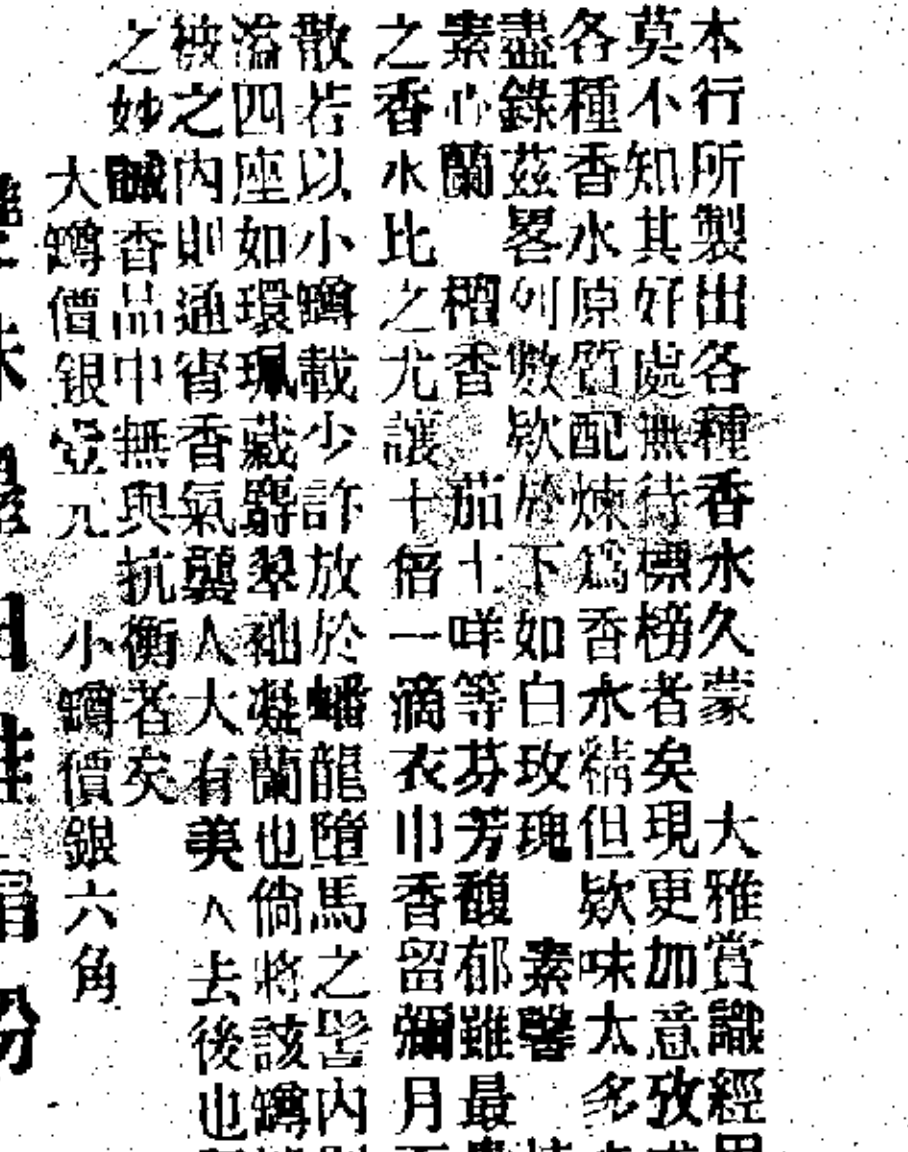 本行所製出各種香水久蒙　大雅賞識經用
莫不知其好處無待標榜者矣現更加意攷求
各種香水原質配煉爲香水精但欵味太多
盡錄茲畧列數欵於下如白玫瑰　素馨
素心蘭　檀香　茄士咩等芬芳馥郁雖最
之香水比之尤讓十倍一滴衣巾香留彌月而
散若以小罇載少許放於蟠龍墮馬之髻內則
溢四座如環珮藏麝翠袖凝蘭也倘將該罇
被之內則通宵香氣襲人大有美人去後
之妙誠香品中無與抗衡者矣
大罇價銀壹元　小罇價銀六角